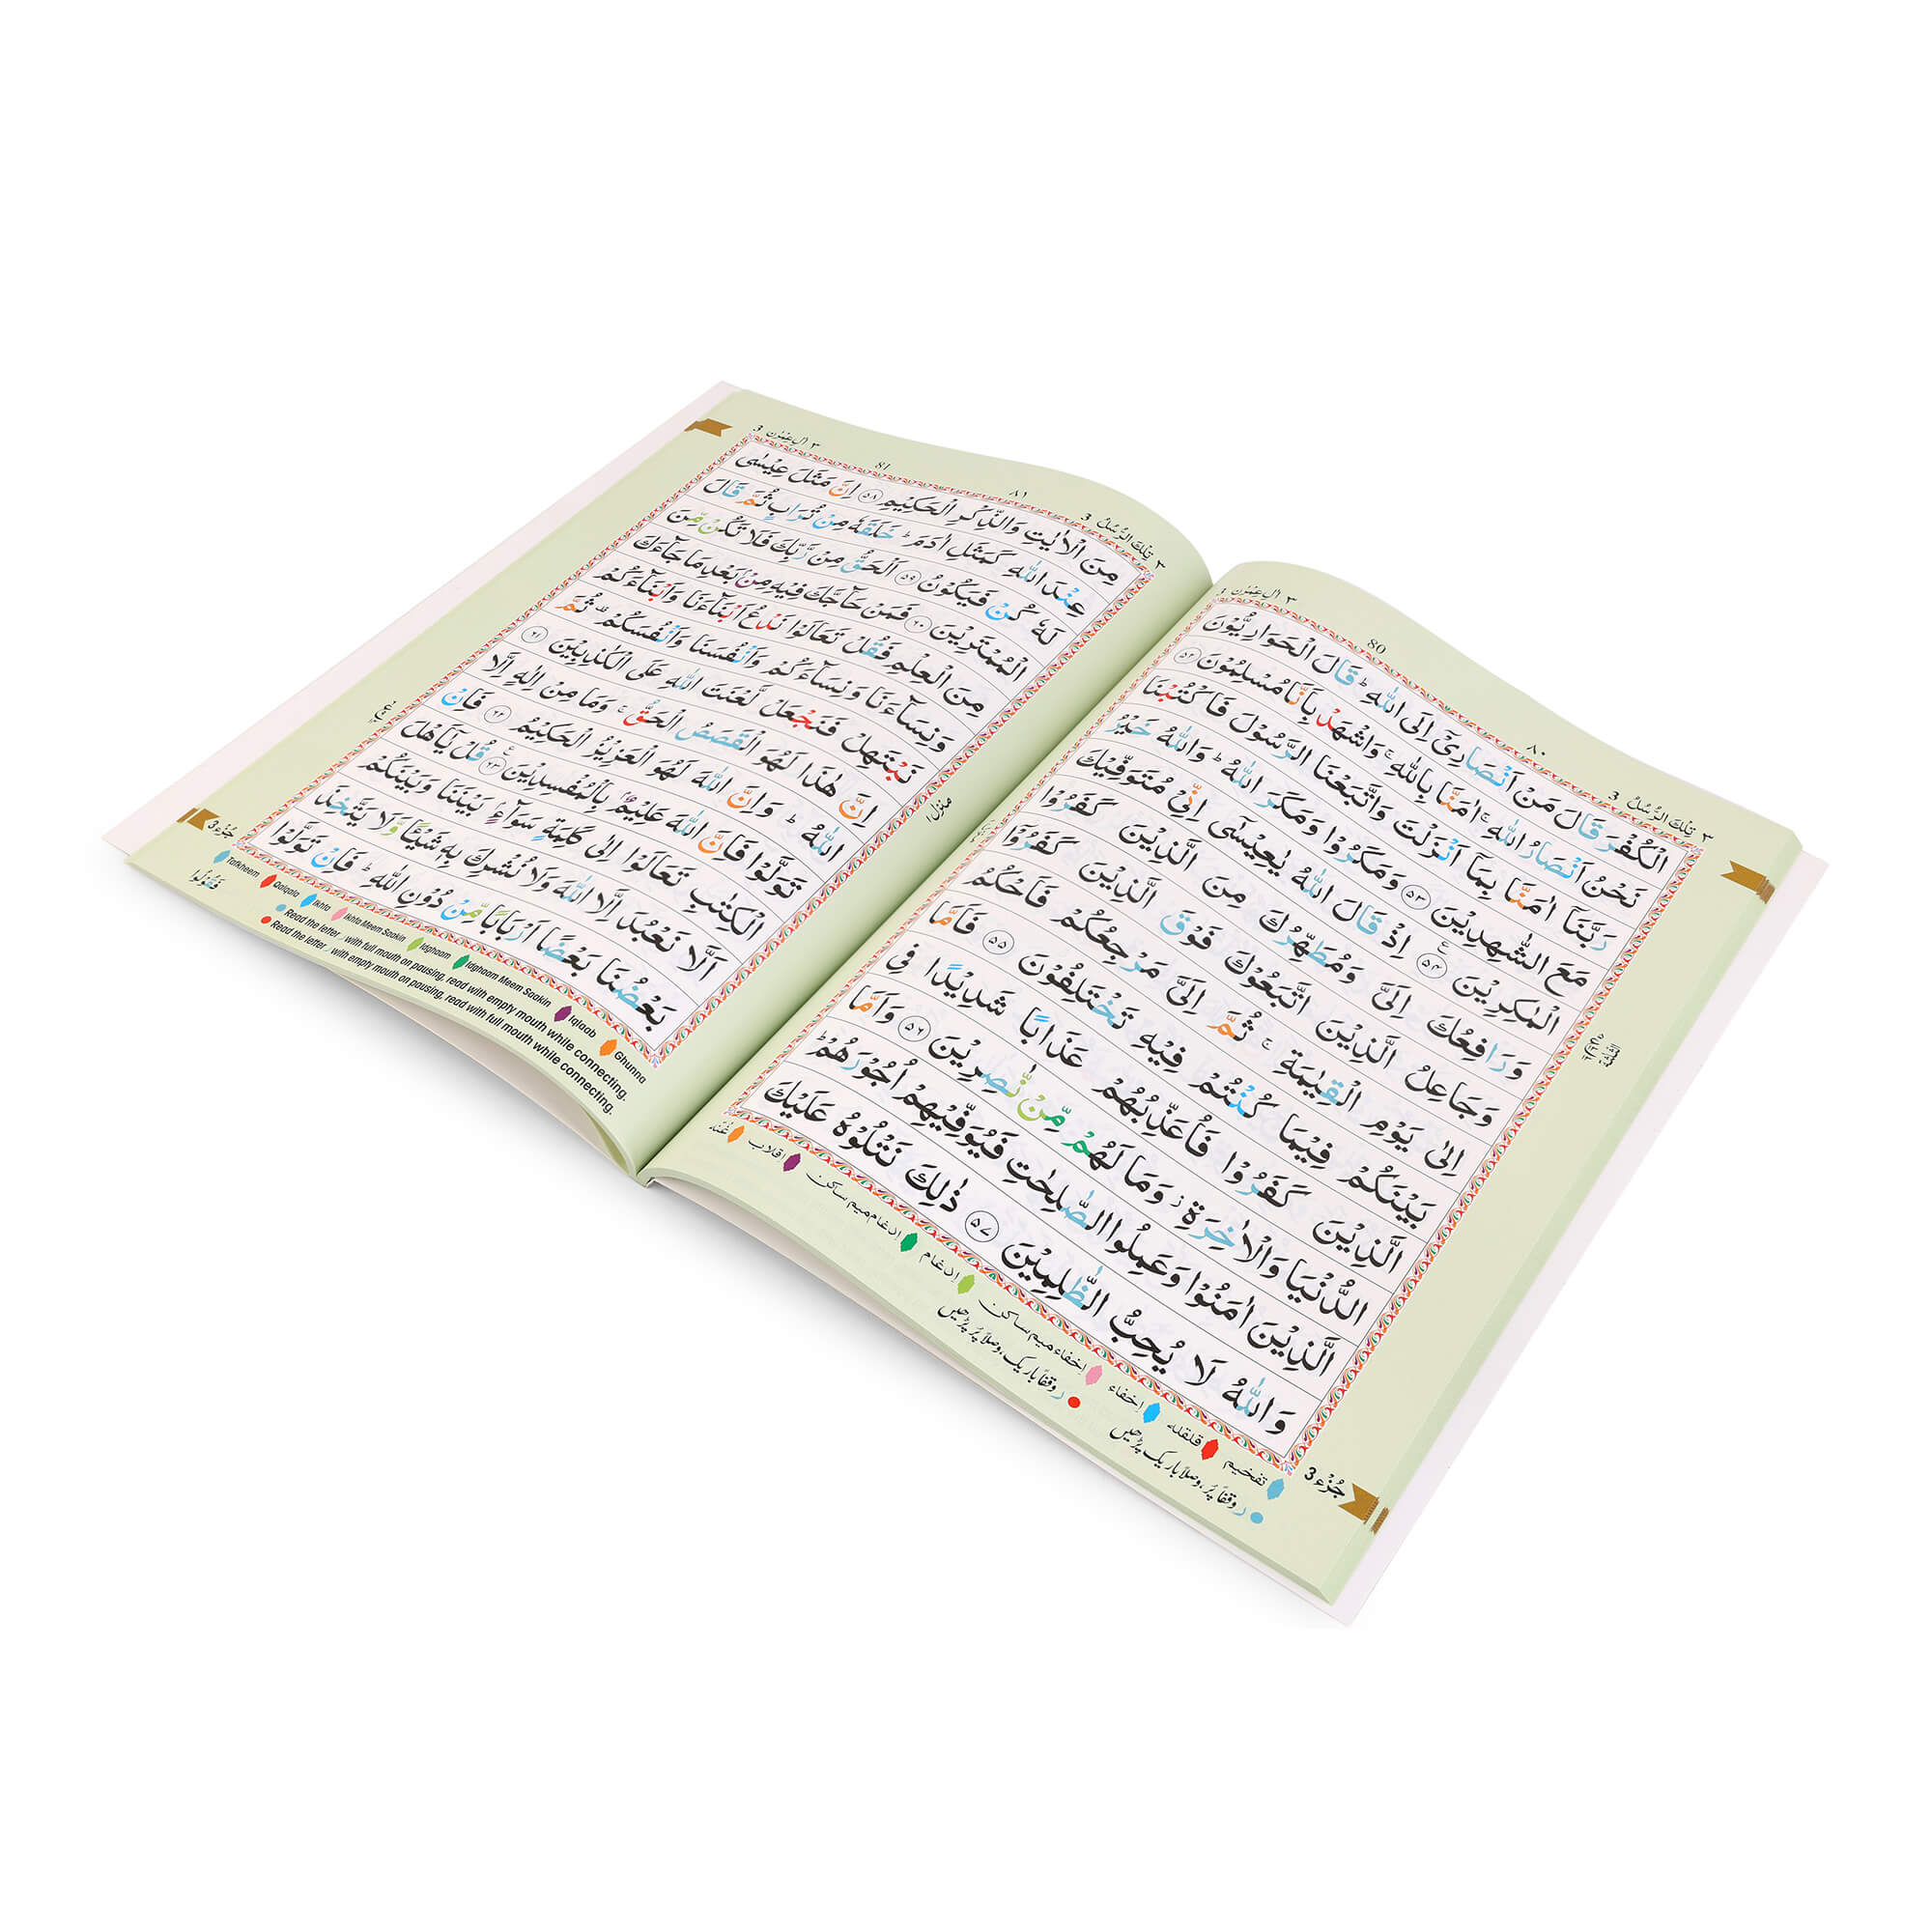 ٣ تِلْكَ الرُّسُلُ 3 ٨٠ 80 ٣ اٰلِ عِمْرٰن
الْكُفْرَ قَالَ مَنْ اَنْصَارِیْۤ اِلَی اللّٰهِ ؕ قَالَ الْحَوَارِیُّوْنَ
نَحْنُ اَنْصَارُ اللّٰهِ ۚ اٰمَنَّا بِاللّٰهِ ۚ وَاشْهَدْ بِاَنَّا مُسْلِمُوْنَ ۵۲
رَبَّنَاۤ اٰمَنَّا بِمَاۤ اَنْزَلْتَ وَاتَّبَعْنَا الرَّسُوْلَ فَاكْتُبْنَا
مَعَ الشّٰهِدِیْنَ ۵۳ وَمَكَرُوْا وَمَكَرَ اللّٰهُ ؕ وَاللّٰهُ خَیْرُ
الْمٰكِرِیْنَ ۵۴ اِذْ قَالَ اللّٰهُ یٰعِیْسٰۤی اِنِّیْ مُتَوَفِّیْكَ
وَرَافِعُكَ اِلَیَّ وَمُطَهِّرُكَ مِنَ الَّذِیْنَ كَفَرُوْا
وَجَاعِلُ الَّذِیْنَ اتَّبَعُوْكَ فَوْقَ الَّذِیْنَ كَفَرُوْۤا
اِلٰی یَوْمِ الْقِیٰمَةِ ۚ ثُمَّ اِلَیَّ مَرْجِعُكُمْ فَاَحْكُمُ
بَیْنَكُمْ فِیْمَا كُنْتُمْ فِیْهِ تَخْتَلِفُوْنَ ۵۵ فَاَمَّا
الَّذِیْنَ كَفَرُوْا فَاُعَذِّبُهُمْ عَذَابًا شَدِیْدًا فِی
الدُّنْیَا وَالْاٰخِرَةِ ؗ وَمَا لَهُمْ مِّنْ نّٰصِرِیْنَ ۵۶ وَاَمَّا
الَّذِیْنَ اٰمَنُوْا وَعَمِلُوا الصّٰلِحٰتِ فَیُوَفِّیْهِمْ اُجُوْرَهُمْ ؕ
وَاللّٰهُ لَا یُحِبُّ الظّٰلِمِیْنَ ۵۷ ذٰلِكَ نَتْلُوْهُ عَلَیْكَ
جُزْء 3
تفخیم قلقله اِخفاء اِخفاء میم ساکن اِدغام اِدغام میم ساکن اقلاب غُنّه
ر وقفاً پُر، وصلاً باریک پڑھیں ر وقفاً باریک، وصلاً پُر پڑھیں
٣ تِلْكَ الرُّسُلُ 3 ٨١ 81 ٣ اٰلِ عِمْرٰن 3
مِنَ الْاٰیٰتِ وَالذِّكْرِ الْحَكِیْمِ ۵۸ اِنَّ مَثَلَ عِیْسٰی
عِنْدَ اللّٰهِ كَمَثَلِ اٰدَمَ ؕ خَلَقَهٗ مِنْ تُرَابٍ ثُمَّ قَالَ
لَهٗ كُنْ فَیَكُوْنُ ۵۹ اَلْحَقُّ مِنْ رَّبِّكَ فَلَا تَكُنْ مِّنَ
الْمُمْتَرِیْنَ ۶۰ فَمَنْ حَآجَّكَ فِیْهِ مِنْۢ بَعْدِ مَا جَآءَكَ
مِنَ الْعِلْمِ فَقُلْ تَعَالَوْا نَدْعُ اَبْنَآءَنَا وَاَبْنَآءَكُمْ
وَنِسَآءَنَا وَنِسَآءَكُمْ وَاَنْفُسَنَا وَاَنْفُسَكُمْ ۫ ثُمَّ
نَبْتَهِلْ فَنَجْعَلْ لَّعْنَتَ اللّٰهِ عَلَی الْكٰذِبِیْنَ ۶۱
اِنَّ هٰذَا لَهُوَ الْقَصَصُ الْحَقُّ ۚ وَمَا مِنْ اِلٰهٍ اِلَّا
اللّٰهُ ؕ وَاِنَّ اللّٰهَ لَهُوَ الْعَزِیْزُ الْحَكِیْمُ ۶۲ فَاِنْ
تَوَلَّوْا فَاِنَّ اللّٰهَ عَلِیْمٌۢ بِالْمُفْسِدِیْنَ ۶۳ قُلْ یٰۤاَهْلَ
الْكِتٰبِ تَعَالَوْا اِلٰی كَلِمَةٍ سَوَآءٍۭ بَیْنَنَا وَبَیْنَكُمْ
اَلَّا نَعْبُدَ اِلَّا اللّٰهَ وَلَا نُشْرِكَ بِهٖ شَیْـًٔا وَّلَا یَتَّخِذَ
بَعْضُنَا بَعْضًا اَرْبَابًا مِّنْ دُوْنِ اللّٰهِ ؕ فَاِنْ تَوَلَّوْا
فَقُوْلُوا
منزل ۱
جُزْء 3
Tafkheem Qalqala Ikhfa Ikhfa Meem Saakin Idghaam Idghaam Meem Saakin Iqlaab Ghunna
Read the letter ر with full mouth on pausing, read with empty mouth while connecting.
Read the letter ر with empty mouth on pausing, read with full mouth while connecting.